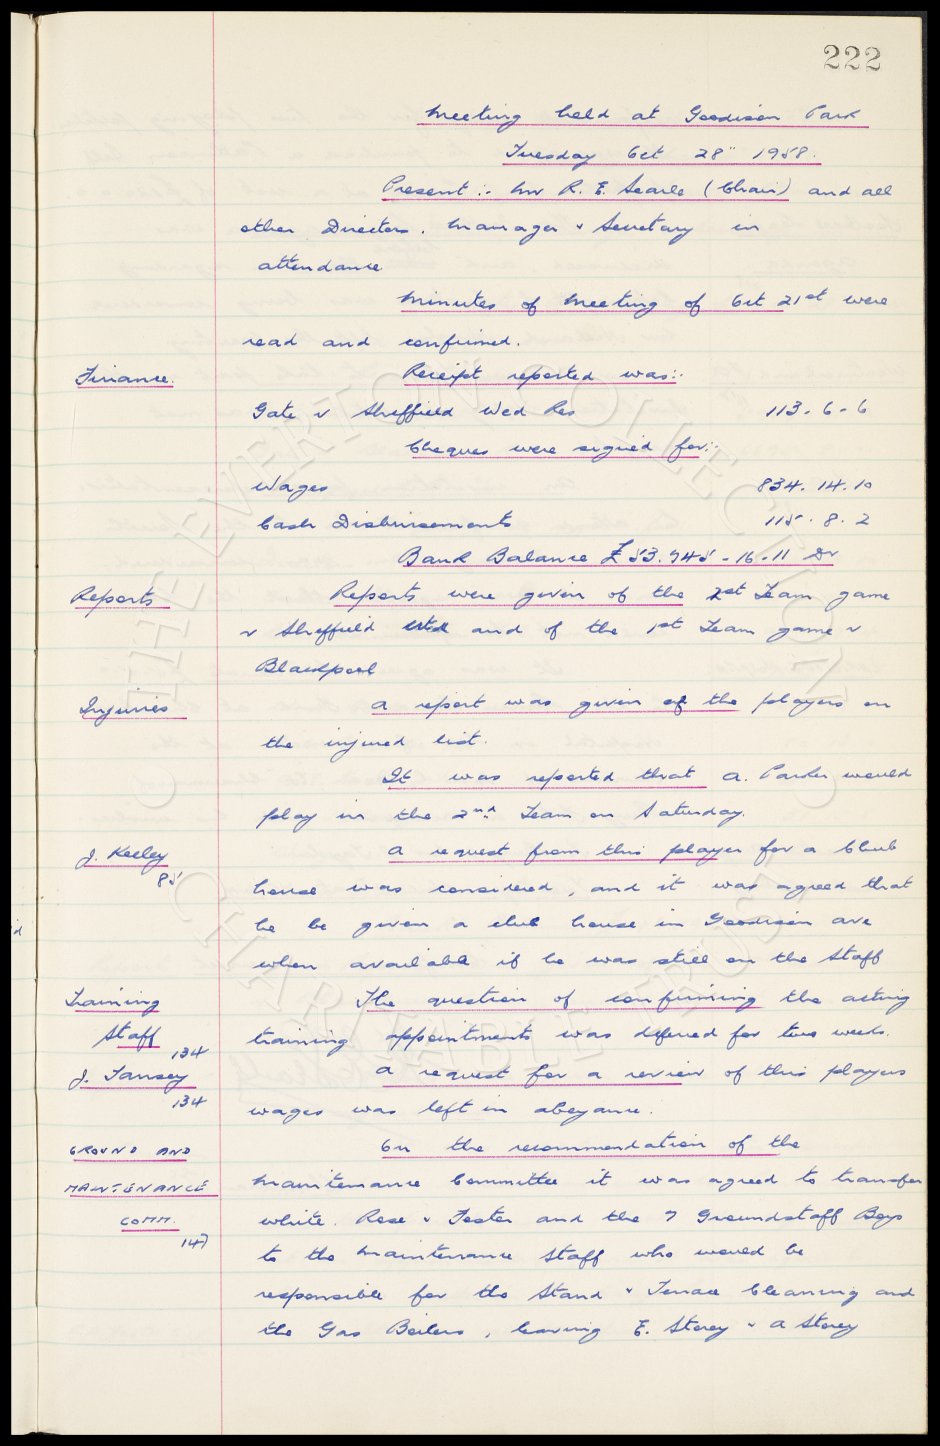 222
Meeting held at Goodison Park
Tuesday Oct 28" 1958.
Present :- Mr R. E. Searle (Chair) and all
other Directors. Manager & Secretary in
attendance
Minutes of Meeting of Oct 21st were
read and confirmed.
Finance. Receipt reported was:-
Gate v Sheffield Wed Res 113. 6. 6
Cheques were signed for:-
Wages 834. 14. 10
Cash Disbursements 115. 8. 2
Bank Balance £53.945-16-11 Dr
Reports Reports were given of the 2st Team game
v Sheffield Wed and of the 1st Team game v
Blackpool
Injuries A report was given of the players on
the injured list.
It was reported that A. Parker would
play in the 2nd Team on Saturday.
J. Keeley A request from this player for a Club
85
house was considered, and it was agreed that
he be given a club house in Goodison Ave
when available if he was still on the Staff
Training The question of confirming the acting
Staff training appointments was deferred for two weeks.
134
J. Tansey A request for a review of this players
134
wages was left in abeyance.
GROUND AND On the recommendation of the
MAINTENANCE Maintenance Committee it was agreed to transfer
COMM. White. Rose & Foster and the 7 Groundstaff Boys
147
to the Maintenance Staff who would be
responsible for the Stand & Terrace Cleaning and
the Gas Boilers, leaving E. Storey & A Storey
THE EVERTON COLLECTION
CHARITABLE TRUST